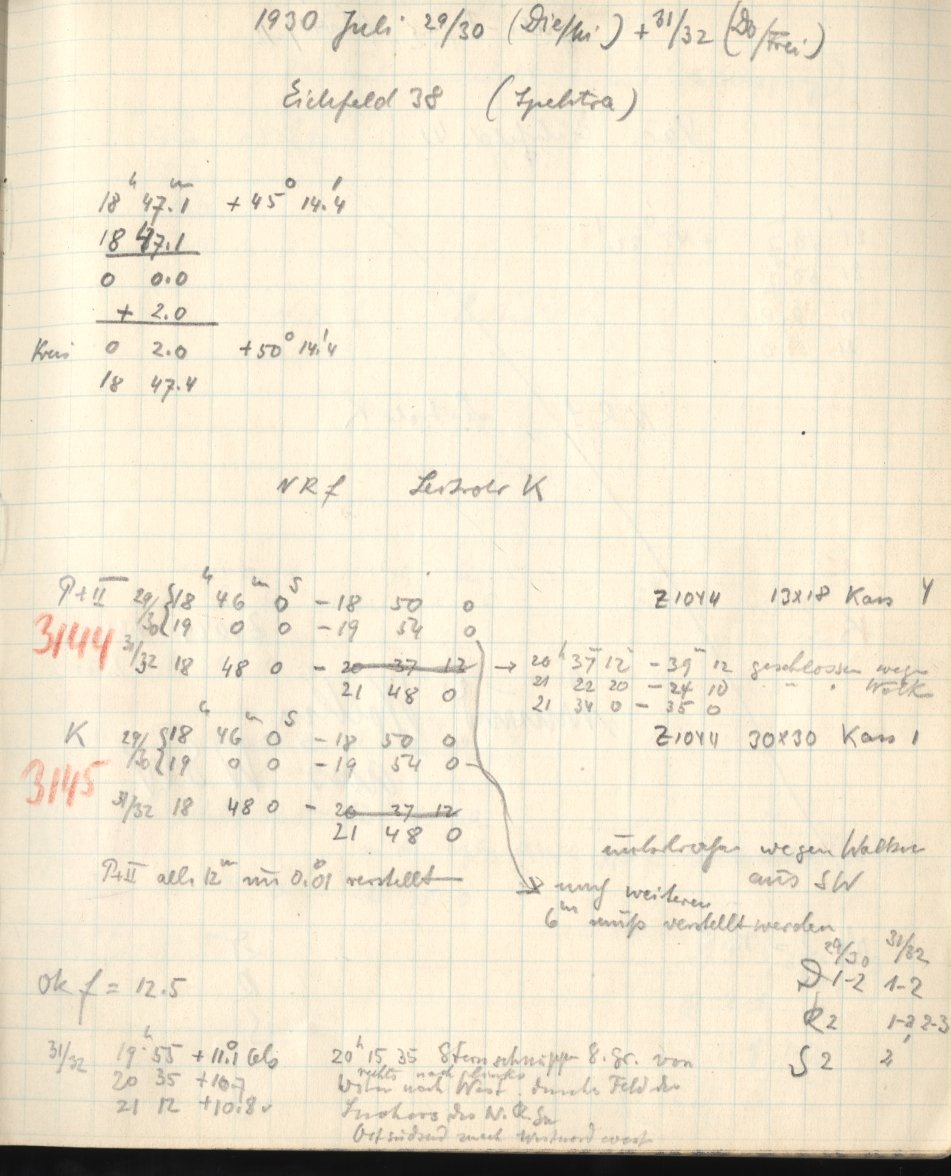 1930 Juli 29/30 (Die/Mi) + 31/32 (Do/Frei)
Eichfeld 38 (Spektra)
18ʰ 47.ᵐ1 + 45° 14.′4
18 47.1
0 0.0
+ 2.0
Kreis 0 2.0 + 50° 14.′4
18 47.4
NRf Leitrohr K
P+II 29/30 {18ʰ 46ᵐ 0ˢ - 18 50 0 Z1044 13x18 Kass 4
3144 {19 0 0 - 19 54 0
31/32 18 48 0 - 20 37 12 → 20ʰ 37ᵐ 12ˢ - 39ᵐ 12 geschlossen wegen
21 48 0 21 22 20 - 24 10 " " Wolk
21 34 0 - 35 0
K 29/30 {18ʰ 46ᵐ 0ˢ - 18 50 0 Z1044 30x30 Kass 1
3145 {19 0 0 - 19 54 0
31/32 18 48 0 - 20 37 12
21 48 0
unterbrochen wegen Wolken
aus SW
P+II alle 12ᵐ um 0.01 verstellt
nach weiteren
6ᵐ muß verstellt werden
29/30 31/32
Ok f = 12.5
D 1-2 1-2
R 2 1-2, 2-3
S 2 2
31/32 19ʰ 55 + 11.°1 Cels 20ʰ 15 35 Sternschnuppe 8. Gr. von
20 35 + 10.7 rechts nach links
Osten nach West durchs Feld des
21 12 + 10.8 Suchers des N.R.
Ostsüdost nach Westnordwest